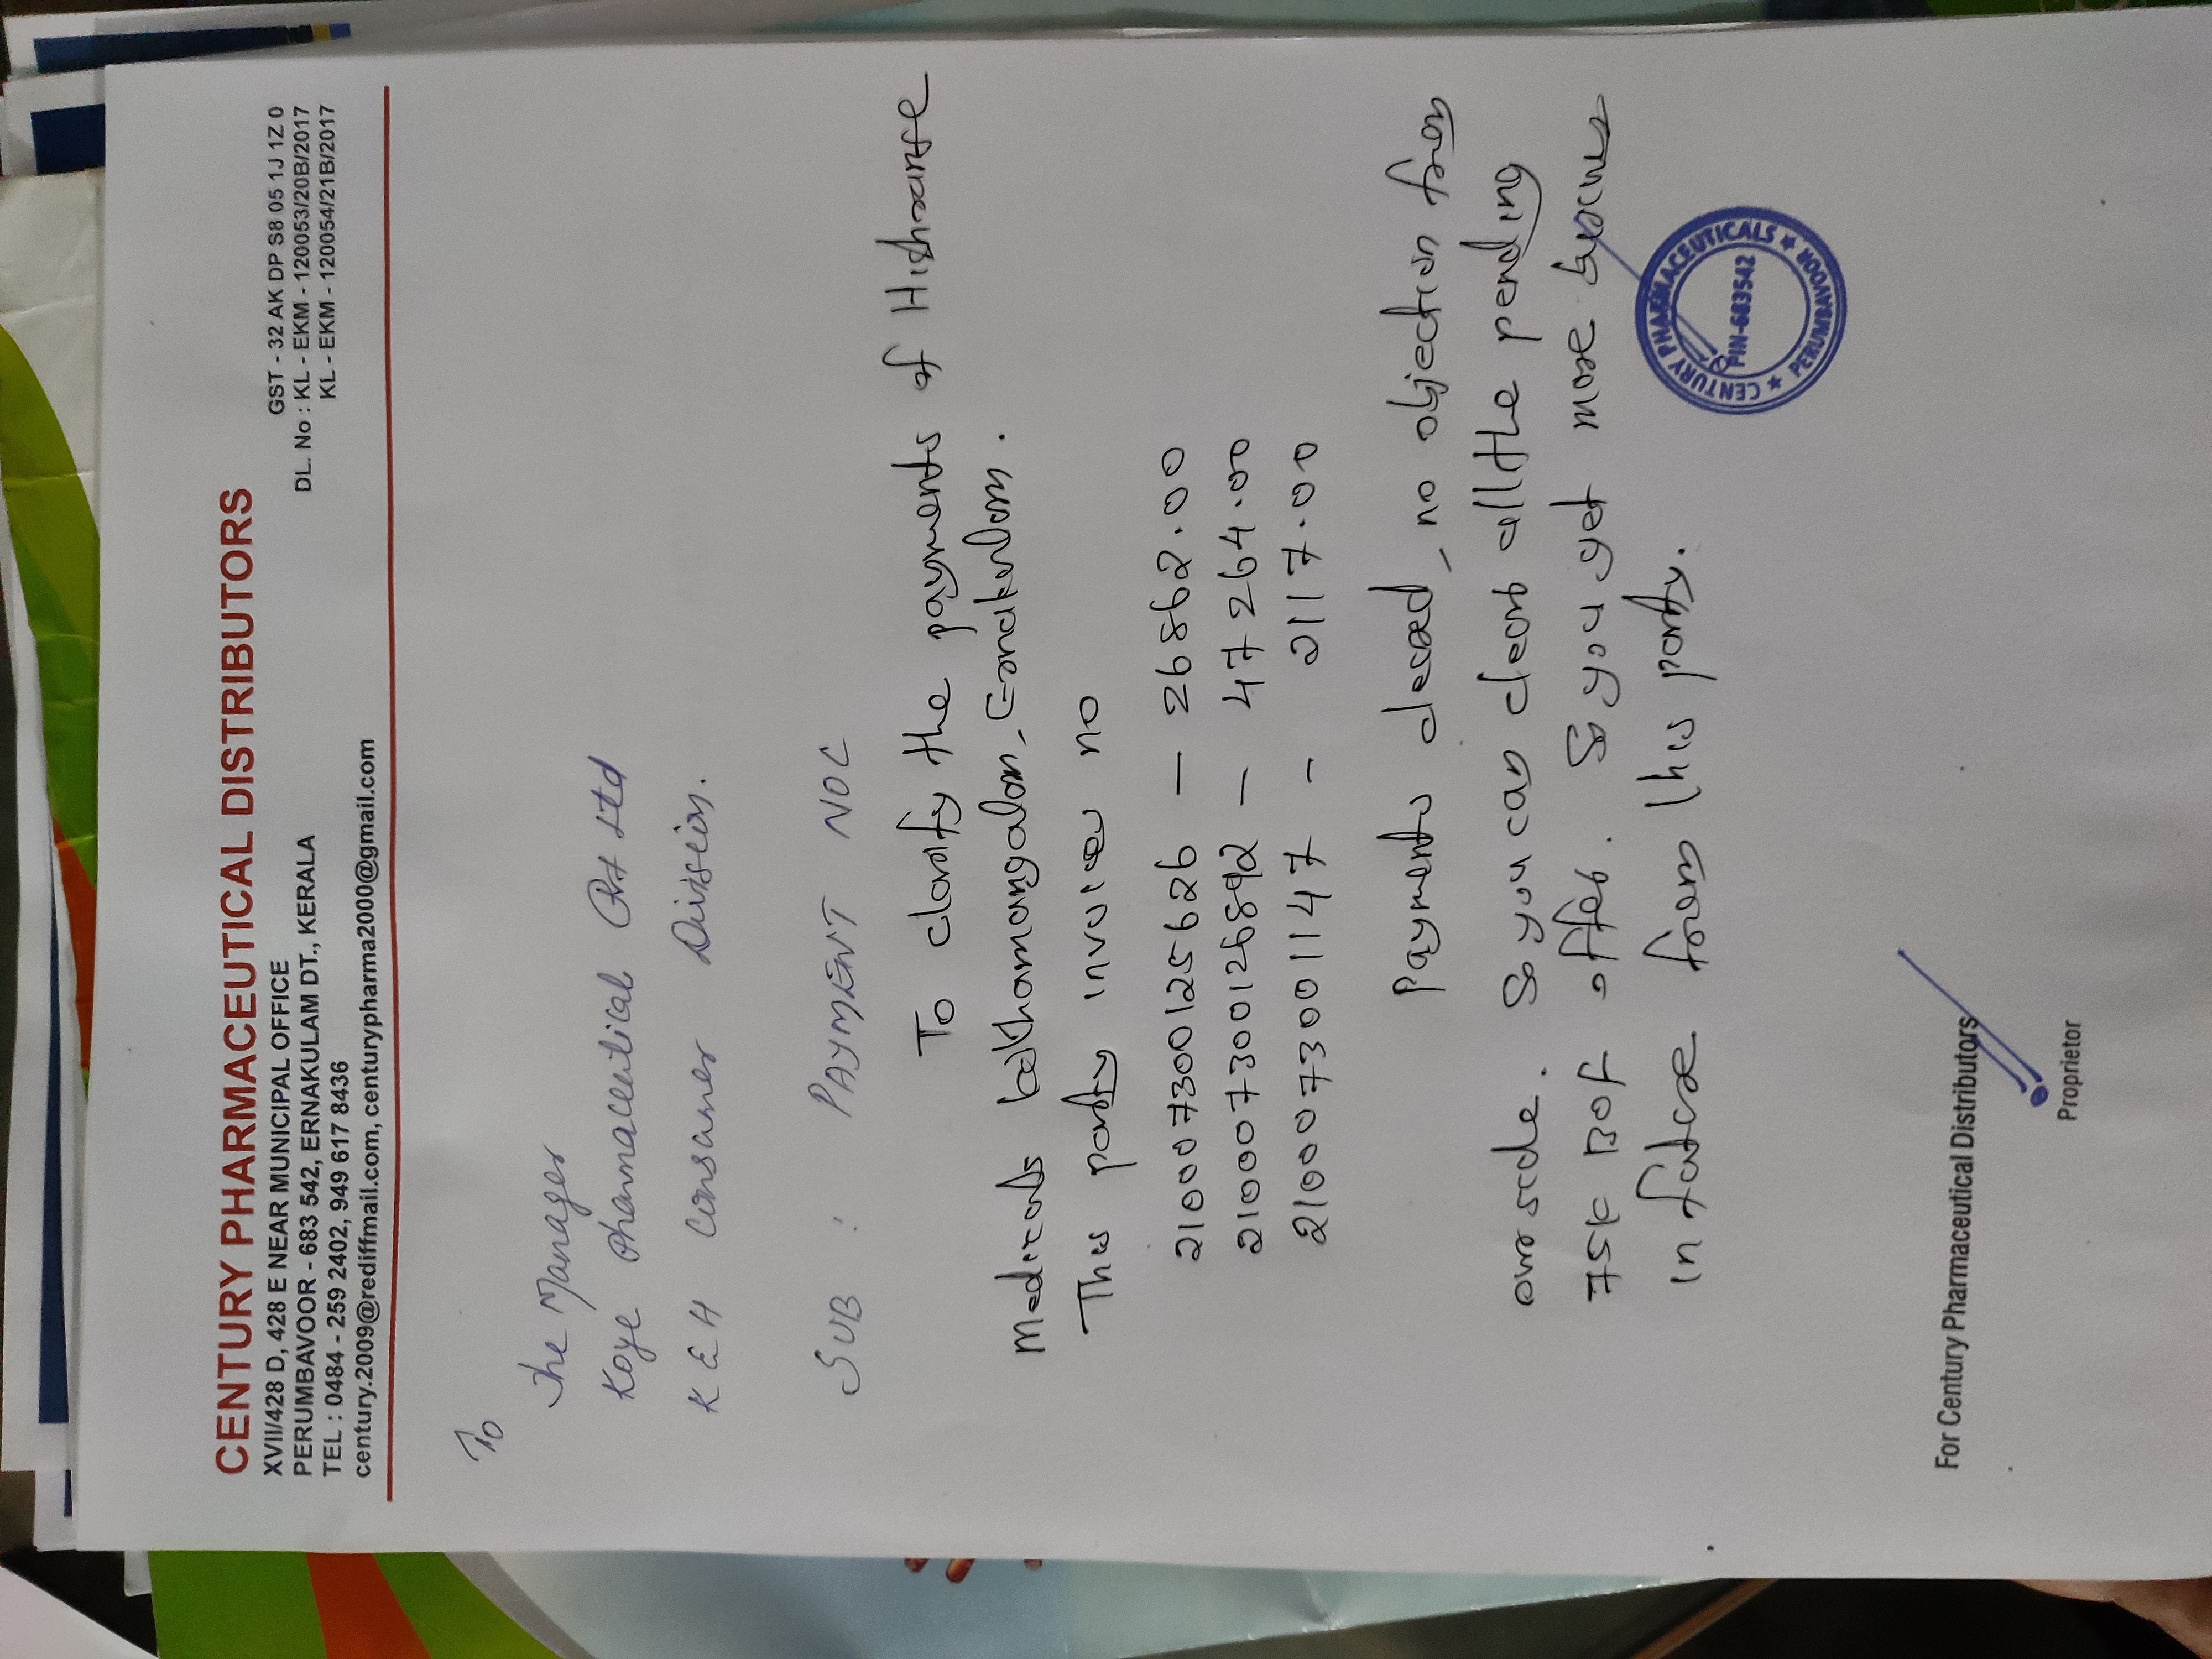 CENTURY PHARMACEUTICAL DISTRIBUTORS
XVII/428 D, 428 E NEAR MUNICIPAL OFFICE
PERUMBAVOOR - 683 542, ERNAKULAM DT., KERALA
TEL : 0484 - 259 2402, 949 617 8436
century.2009@rediffmail.com, centurypharma2000@gmail.com
GST - 32 AK DP S8 05 1J 1Z 0
DL. No : KL - EKM - 120053/20B/2017
KL - EKM - 120054/21B/2017
To
The Manager
Koye Pharmaceutical Pvt Ltd
K E H Consumer Division.
SUB : PAYMENT NOC
To clarify the payments of
Medicals
This party invoices no
21000730012 5626 - 26862.00
210007300126892 - 47264.00
2100073001147 - 2117.00
Payments cleared, no objection from
our side. So you can clear all the pending
75K BOF offer. So you get more
in future from this party.
CENTURY PHARMACEUTICALS
PIN-683542
★ PERUMBAVOOR ★
For Century Pharmaceutical Distributors
Proprietor